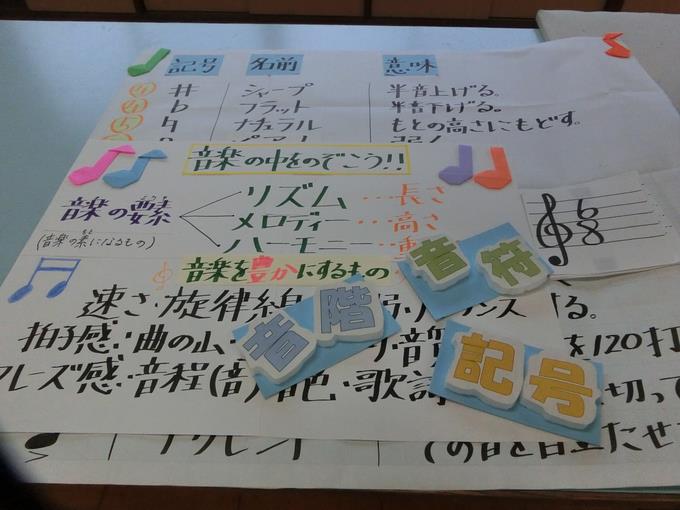 記号 名前 意味
♯ シャープ 半音上げる。
♭ フラット 半音下げる。
♮ ナチュラル もとの高さにもどす。
音楽の中をのぞこう!!
音楽の素
(音楽の素になるもの)
リズム…長さ
メロディー…高さ
ハーモニー…
6
8
音楽を豊かにするもの
音符
速さ・旋律線
する。
音階
拍子感・曲の山
を120打
記号
フレーズ感・音程(音)音色・歌詞
切って
アクセント
の音を目立たせ